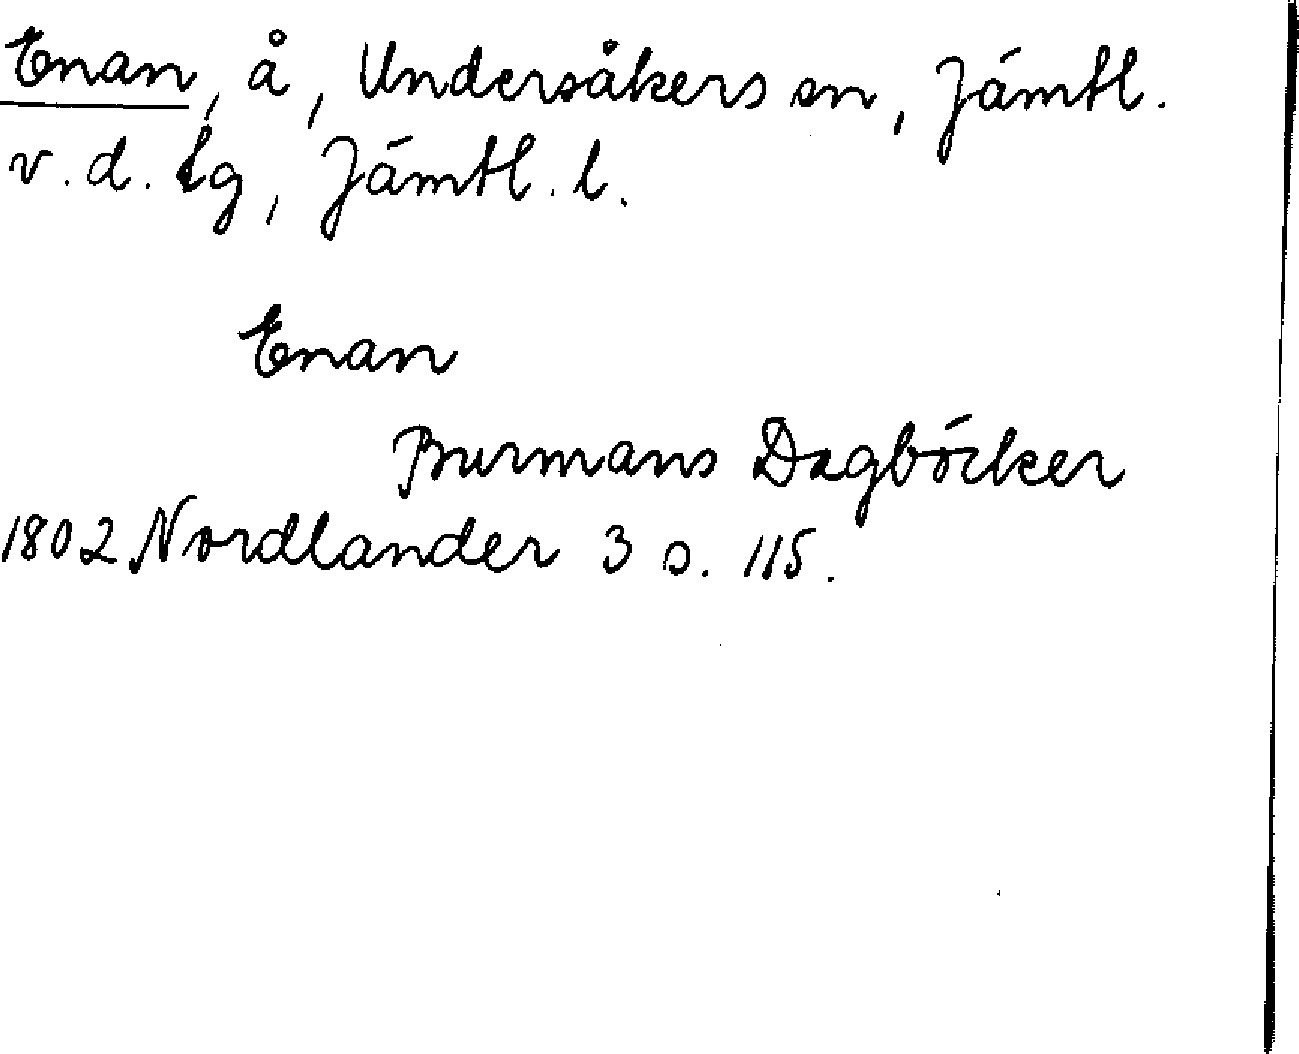 Enan, å, Undersåkers sn, Jämtl.
v. d. tg, Jämtl. l.
Enan
Burmans Dagböcker
1802 Nordlander 3 s. 115.